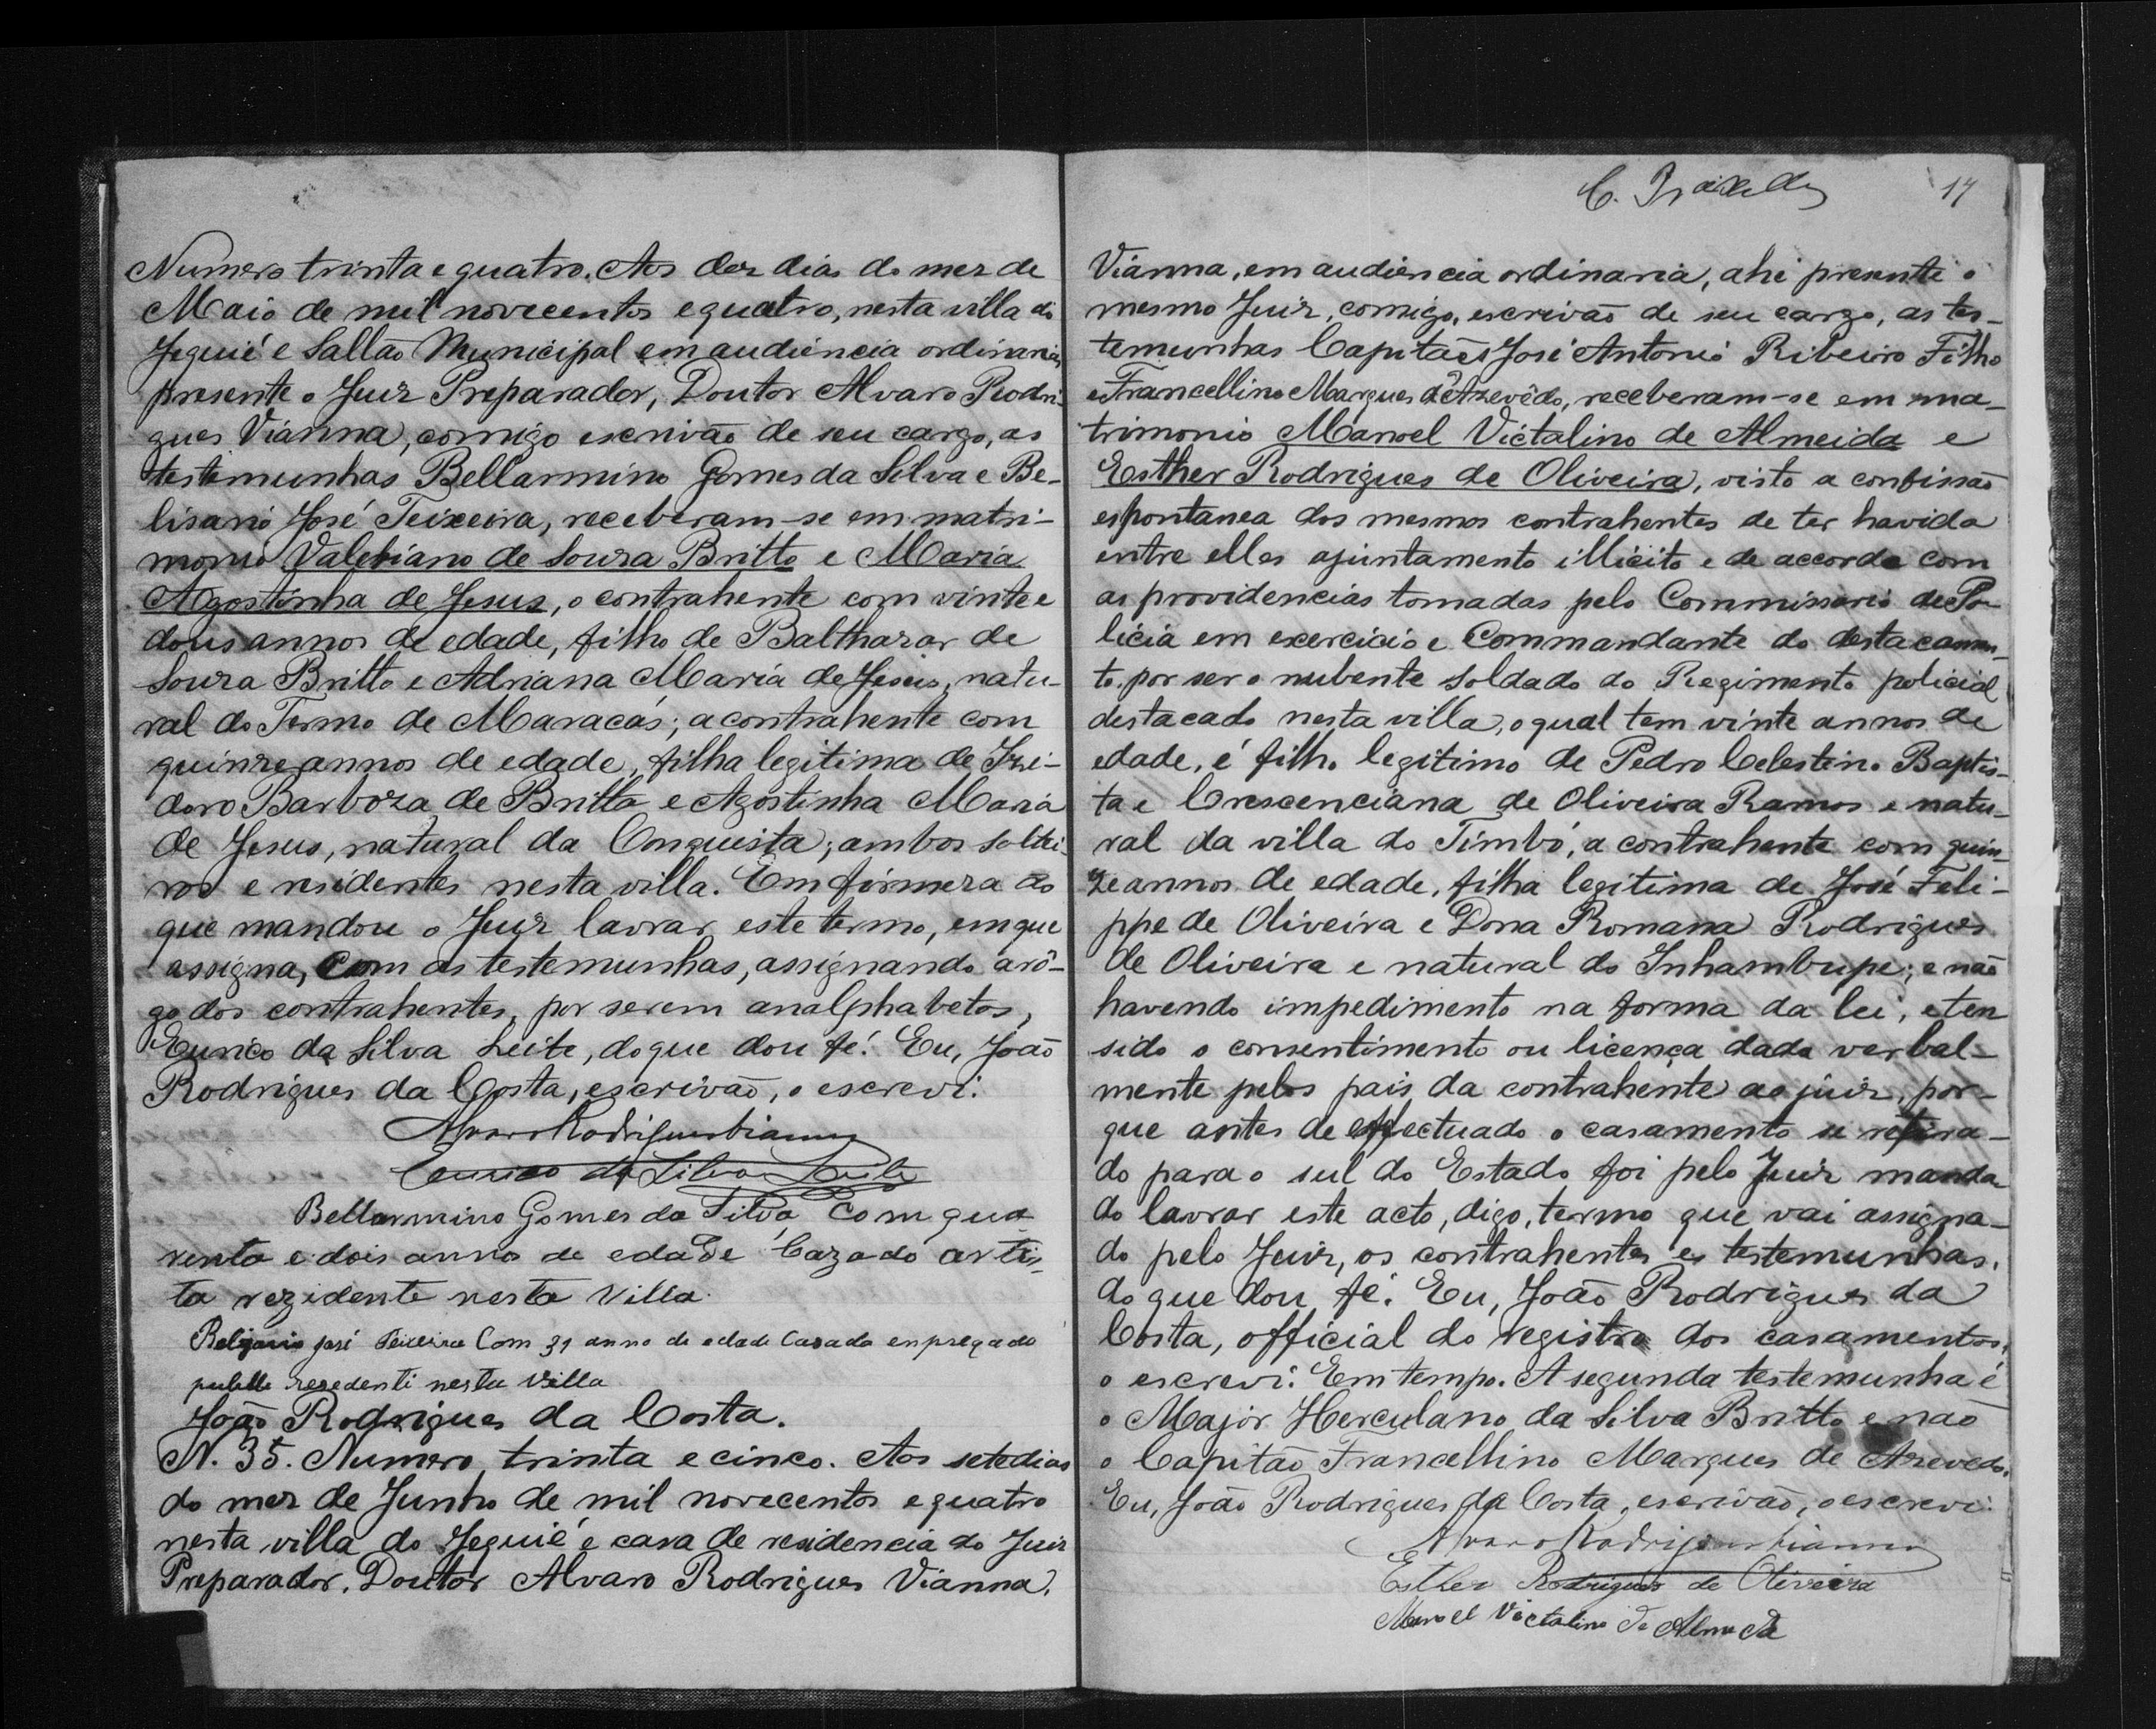 Numero trinta e quatro. Aos dez dias do mez de
Maio de mil novecentos e quatro, nesta villa do
Jequié e Sallão Municipal em audiencia ordinaria,
presente o Juiz Preparador, Doutor Alvaro Rodri-
gues Vianna, comigo escrivão de seu cargo, as
testemunhas Bellarmino Gomes da Silva e Be-
lisario José Teixeira, receberam-se em matri-
monio Valeriano de Souza Britto e Maria
Agostinha de Jesus, o contrahente com vinte e
dous annos de edade, filho de Balthazar de
Souza Britto e Adriana Maria de Jesus, natu-
ral do Termo de Maracás; a contrahente com
quinze annos de edade, filha legitima de Izi-
doro Barboza de Britto e Agostinha Maria
de Jesus, natural da Conquista; ambos soltei-
ros e residentes nesta villa. Em firmeza do
que mandou o Juiz lavrar este termo, em que
assigna, com as testemunhas, assignando a rô-
go dos contrahentes, por serem analphabetos,
Eurico da Silva Leite, do que dou fé. Eu, João
Rodrigues da Costa, escrivão, o escrevi.
Alvaro Rodrigues Vianna
Eurico da Silva Leite
Bellarmino Gomes da Silva, com qua
renta e dois annos de edade Cazado artis-
ta rezidente nesta Villa.
Belizario José Teixeira Com 31 anno de edade Casado enpregado
publlo rezedenti nesta Villa
João Rodrigues da Costa.
N. 35. Numero trinta e cinco. Aos sete dias
do mez de Junho de mil novecentos e quatro
nesta villa do Jequié e casa de residencia do Juiz
Preparador, Doutor Alvaro Rodrigues Vianna,
17
Vianna, em audiencia ordinaria, ahi presente o
mesmo Juiz, comigo, escrivão de seu cargo, as tes-
temunhas Capitães José Antonio Ribeiro Filho
e Francellino Marques d'Azevêdo, receberam-se em ma-
trimonio Manoel Victalino de Almeida e
Esther Rodrigues de Oliveira, visto a confissão
espontanea dos mesmos contrahentes de ter havida
entre elles ajuntamento illicito e de accordo com
as providencias tomadas pelo Commissario de Po-
licia em exercicio e Commandante do destacamen-
to, por ser o nubente soldado do Regimento policial
destacado nesta villa, o qual tem vinte annos de
edade, é filho legitimo de Pedro Celestino Baptis-
ta e Crescenciana de Oliveira Ramos e natu-
ral da villa do Timbó, a contrahente com quin-
ze annos de edade, filha legitima de José Feli-
ppe de Oliveira e Dona Romana Rodrigues
de Oliveira e natural do Inhambupe; e não
havendo impedimento na forma da lei, e ten
sido o consentimento ou licença dada verbal-
mente pelos pais da contrahente ao juiz, por-
que antes de effectuado o casamento se retira-
do para o sul do Estado foi pelo Juiz manda-
do lavrar este acto, digo, termo que vai assigna-
do pelo Juiz, os contrahentes e testemunhas,
do que dou fé. Eu, João Rodrigues da
Costa, official do registro dos casamentos,
o escrevi. Em tempo. A segunda testemunha é
o Major Herculano da Silva Britto e não
o Capitão Francellino Marques de Azevedo.
Eu, João Rodrigues da Costa, escrivão, o escrevi.
Alvaro Rodrigues Vianna
Esther Rodrigues de Oliveira
Manoel Victalino de Almeda